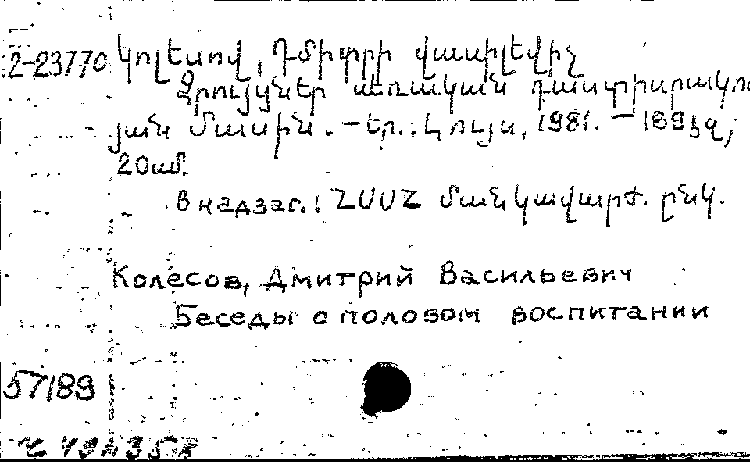 2-23770 Կոլեսով, Դմիտրի Վասիլևիչ
Զրույցներ սեռական դաստիարակու
յան մասին. - Եր.: Լույս, 1981. - 169 էջ;
20սմ.
В надзаг.: ՀՍՍՀ մանկավարժ. ընկ.
Колесов, Дмитрий Васильевич
Беседы о половом воспитании
57189